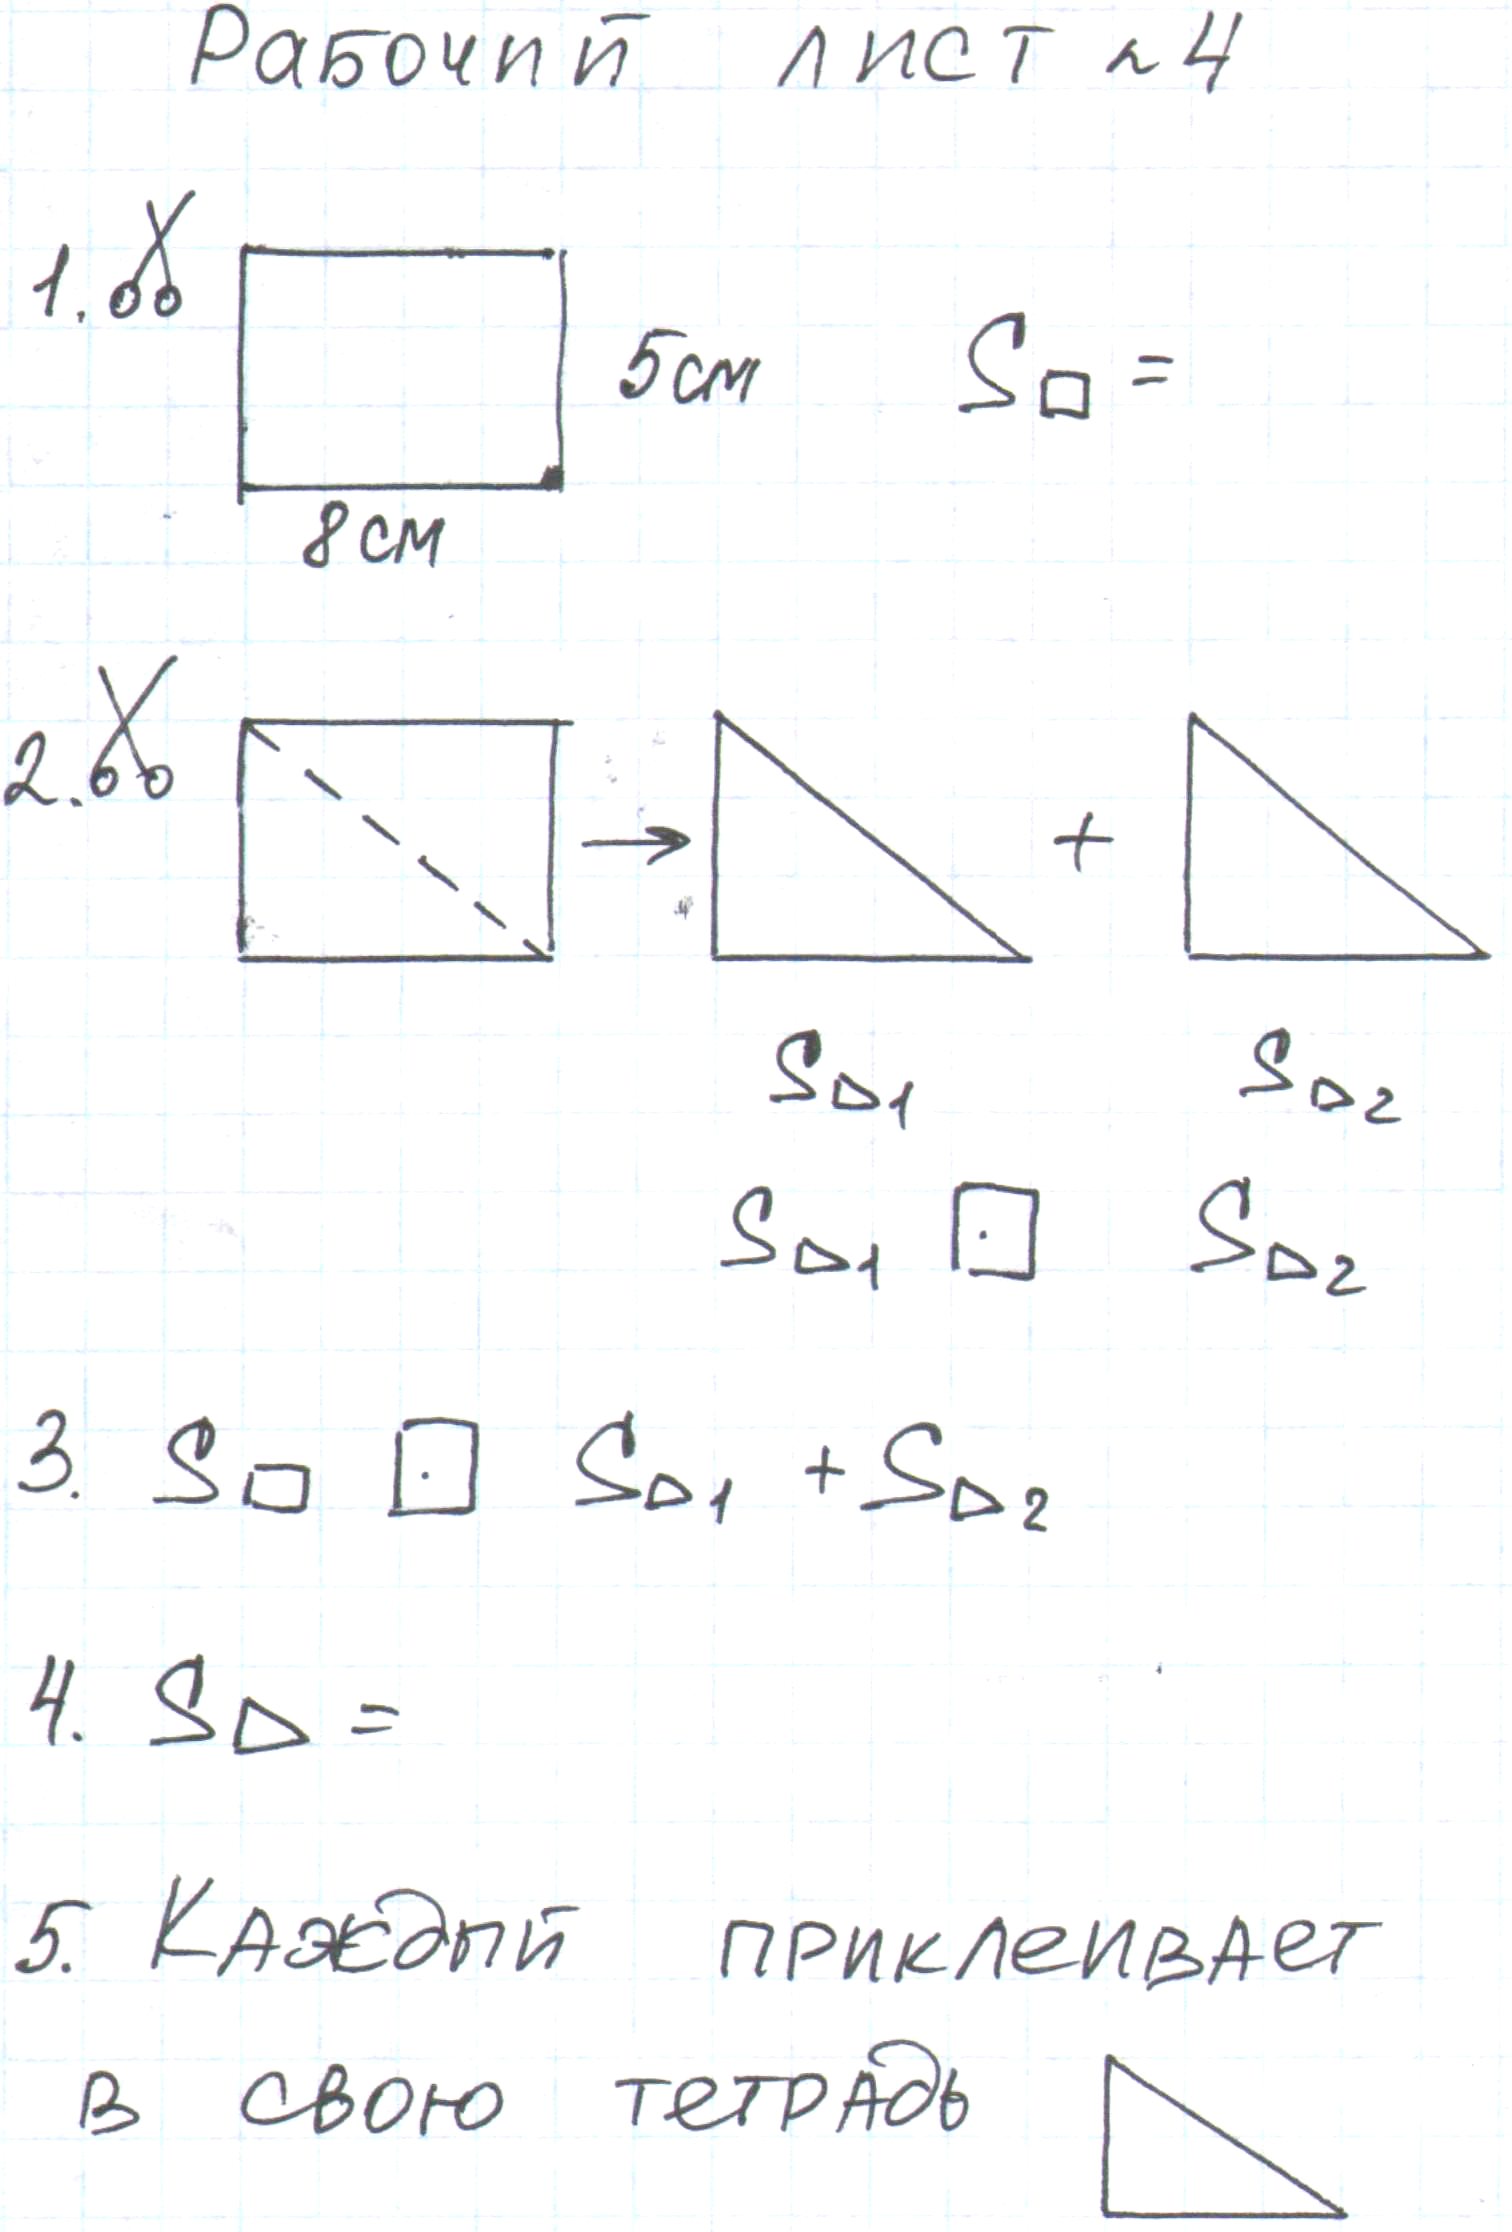 Рабочий лист №4
1.
5см
S□ =
8см
2.
→ +
S△1 S△2
S△1 □ S△2
3. S□ □ S△1 + S△2
4. S△ =
5. Каждый приклеивает
в свою тетрадь